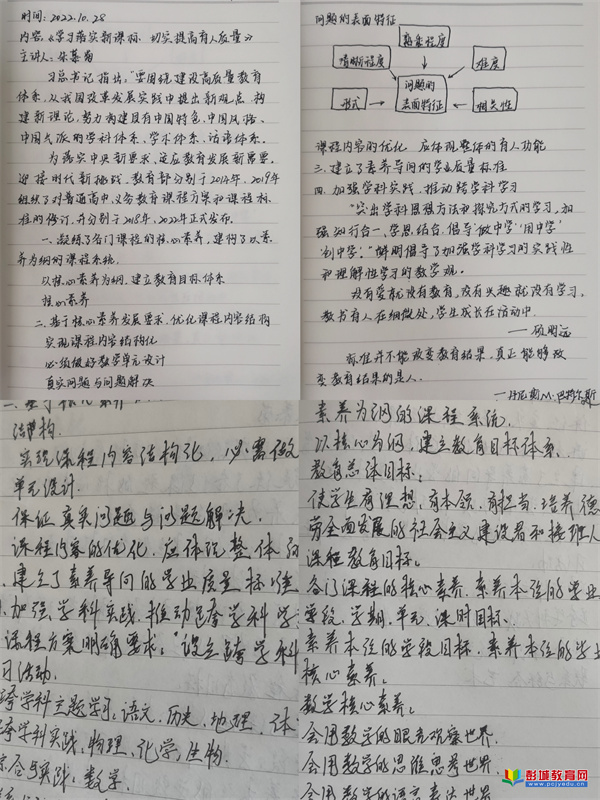 时间:2022.10.28
内容:《学习落实新课标 切实提高育人质量》
主讲人:朱慕菊
习总书记指出:"要围绕建设高质量教育
体系,从我国改革发展实践中提出新观点、构
建新理论,努力构建具有中国特色、中国风格、
中国气派的学科体系、学术体系、话语体系。
为落实中央新要求,适应教育发展新需要,
迎接时代新挑战,教育部分别于2014年、2019年
组织了对普通高中、义务教育课程方案和课程标
准的修订,并分别于2018年、2022年正式发布。
一、凝练了各门课程的核心素养,建构了以素
养为纲的课程系统.
以核心素养为纲,建立教育目标体系
核心素养
二、基于核心素养发展要求,优化课程内容结构
实现课程内容结构化
必须做好教学单元设计
真实问题与问题解决
问题的表面特征
熟悉程度
清晰程度
难度
问题的
表面特征
形式
相关性
课程内容的优化 应体现整体的育人功能
三、建立了素养导向的学业质量标准
四、加强学科实践,推动跨学科学习
"突出学科思想方法和探究方式的学习,加
强知行合一、学思结合,倡导"做中学""用中学"
"创中学","鲜明倡导了加强学科学习的实践性
和理解性学习的教学观。
没有爱就没有教育,没有兴趣就没有学习,
教书育人在细微处,学生成长在活动中.
——顾明远
标准并不能改变教育结果,真正能够改
变教育结果的是人.
结构.
实现课程内容结构化,必需做
单元设计.
保证真实问题与问题解决.
课程内容的优化,应体现整体的
建立了素养导向的学业质量标准
加强学科实践,推动跨学科学
课程方案明确要求:"设立跨学科
习活动.
跨学科主题学习:语文、历史、地理、体
跨学科实践:物理、化学、生物.
综合与实践:数学.
素养为纲的课程系统.
以核心为纲,建立教育目标体系.
教育总体目标:
使学生有理想、有本领、有担当,培养德
劳全面发展的社会主义建设者和接班人
课程教育目标.
各门课程的核心素养、素养本位的学业
学段、学期、单元、课时目标.
素养本位的学段目标、素养本位的学业
核心素养:
数学核心素养:
会用数学的眼光观察世界.
会用数学的思维思考世界.
会用数学的语言表达世界
彭城教育网
www.pcjyedu.cn